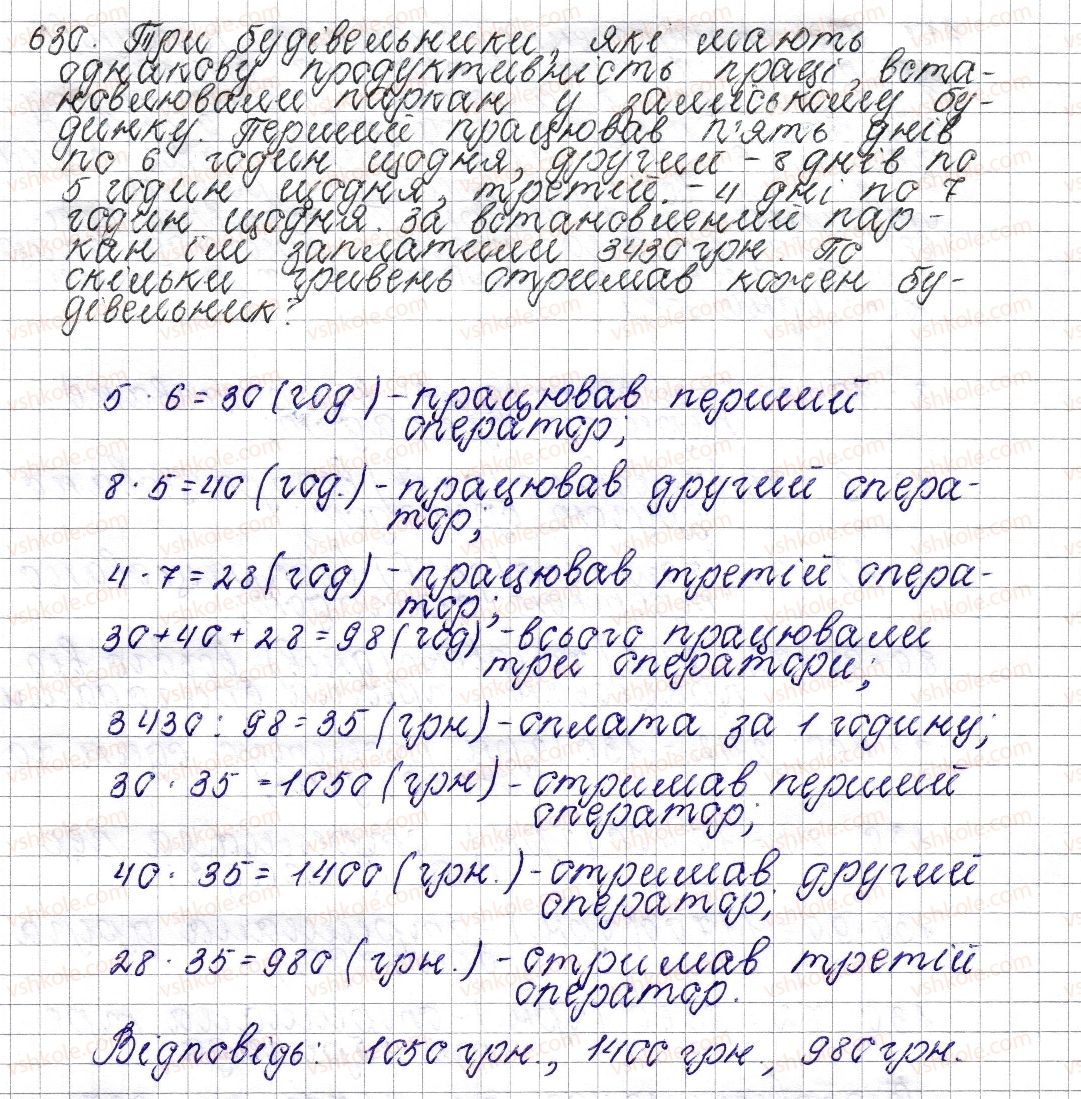 630. Три будівельники, які мають
однакову продуктивність праці, вста-
новлювали паркан у заміському бу-
динку. Перший працював п'ять днів
по 6 годин щодня, другий - 8 днів по
5 годин щодня, третій - 4 дні по 7
годин щодня. За встановлений пар-
кан їм заплатили 3430 грн. По
скільки гривень отримав кожен бу-
дівельник?
5 · 6 = 30 (год) - працював перший
оператор;
8 · 5 = 40 (год.) - працював другий опера-
тор;
4 · 7 = 28 (год) - працював третій опера-
тор;
30 + 40 + 28 = 98 (год) - всього працювали
три оператори;
3430 : 98 = 35 (грн) - оплата за 1 годину;
30 · 35 = 1050 (грн) - отримав перший
оператор;
40 · 35 = 1400 (грн.) - отримав другий
оператор;
28 · 35 = 980 (грн.) - отримав третій
оператор.
Відповідь: 1050 грн., 1400 грн., 980 грн.